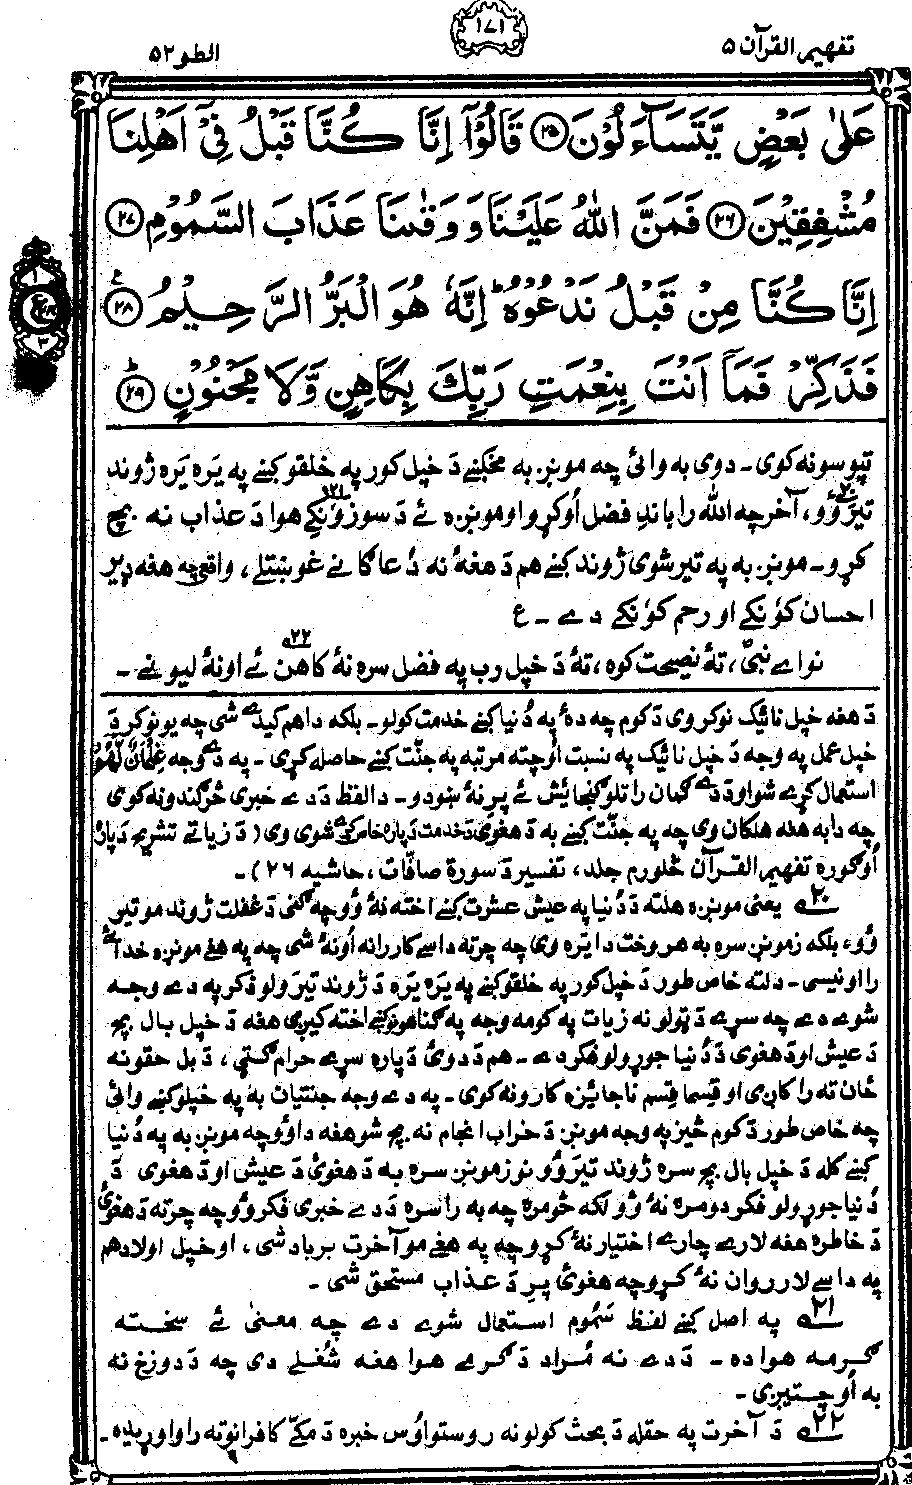 تفهيم القرآن ۵
۱۷۱
الطور ۵۲
عَلٰى بَعْضٍ يَّتَسَآءَلُوْنَ ۲۵ قَالُوْٓا اِنَّا كُنَّا قَبْلُ فِيْٓ اَهْلِنَا
مُشْفِقِيْنَ ۲۶ فَمَنَّ اللّٰهُ عَلَيْنَا وَ وَقٰىنَا عَذَابَ السَّمُوْمِ ۲۷
اِنَّا كُنَّا مِنْ قَبْلُ نَدْعُوْهُ ؕ اِنَّهٗ هُوَ الْبَرُّ الرَّحِيْمُ ۲۸ ع
فَذَكِّرْ فَمَآ اَنْتَ بِنِعْمَتِ رَبِّكَ بِكَاهِنٍ وَّلَا مَجْنُوْنٍ ۲۹ ط
تپوسونه کوی ـ دوی به وائی چه مونږ به مخکښے دَ خپل کور په خلقو کښے په یَره یَره ژوند
تیرَوُو، آخر چه الله را باندِ فضل اُوکړو او مونږه ئے دَ سوزوُنکے هوا دَ عذاب نه بچ
کړو ـ مونږ به په تیر شوی ژوند کښے هم دَ هغهٔ نه دُعاګانے غوښتلے، واقعی چه هغه ډیر
احسان کوُنکے او رحم کوُنکے دے ـ ع
نو اے نبیؐ، تهٔ نصیحت کوه، تهٔ دَ خپل رب په فضل سره نهٔ کاهن ئے او نهٔ لیونے ـ
دَ هغه خپل نائیک نوکر وی دَ کوم چه دهٔ په دُنیا کښے خدمت کولو ـ بلکه دا هم کیدے شی چه یو نوکر دَ
خپل عمل په وجه دَ خپل نائیک په نسبت اوچته مرتبه په جنّت کښے حاصله کړی ـ په دے وجه غِلْمَانٌ لَّهُمْ
استعمال کړے شو او دَ دے ګمان راتلو ګنجائش ئے پرنهٔ ښودو ـ دا لفظ دَ دے خبری څرګندونه کوی
چه دا به هغه هلکان وی چه په جنّت کښے به دَ هغوی دَ خدمت دَپاره خاص کړے شوی وی (دَ زیاتے تشریح دَپاره
اُوګوره تفهیم القرآن څلورم جلد، تفسیر دَ سورة صافّات، حاشیه ۲۶) ـ
۲۰ یعنی مونږه هلته دَ دُنیا په عیش عشرت کښے اخته نهٔ وُو چه ګنی دَ غفلت ژوند مو تیر
وُو، بلکه زمونږ سره به هر وخت دا یَره وی چه چرته داسے کار رانه اُونهٔ شی چه په هغے مونږه خدائے
را اونیسی ـ دلته خاص طور دَ خپل کور په خلقو کښے په یَره یَره دَ ژوند تیرَولو ذکر په دے وجه
شوے دے چه سرے دَ ټولو نه زیات په کومه وجه په ګناهونو کښے اخته کیږی هغه دَ خپل بال بچ
دَ عیش او دَ هغوی دَ دُنیا جوړولو فکر دے ـ هم دَ دوئ دَپاره سرے حرام ګټی، دَ بل حقونه
ځان ته راکاږی او قِسما قِسم ناجائزه کارونه کوی ـ په دے وجه جنتیان به په خپلو کښے وائی
چه خاص طور دَ کوم څیز په وجه مونږ دَ خراب انجام نه بچ شو هغه دا وُو چه مونږ به په دُنیا
کښے کله دَ خپل بال بچ سره ژوند تیرَوُو نو زمونږ سره به دَ هغوئ دَ عیش او دَ هغوی دَ
دُنیا جوړولو فکر دومره نهٔ وُو لکه څومره چه به راسره دَ دے خبری فکر وُو چه چرته دَ هغوئ
دَ خاطره هغه لارے چارے اختیار نهٔ کړو چه په هغے مو آخرت برباد شی، او خپل اولاد هم
په داسے لار روان نهٔ کړو چه هغوئ پرِ دَ عذاب مستحق شی ـ
۲۱ په اصل کښے لفظ سَمُوم استعمال شوے دے چه معنیٰ ئے سخته
ګرمه هوا ده ـ دَ دے نه مُراد دَ ګرمے هوا هغه شُغلے دی چه دَ دوزخ نه
به اُوچتیږی ـ
۲۲ دَ آخرت په حقله دَ بحث کولو نه روستو اوُس خبره دَ مکّے کافرانو ته راواوړیده ـ